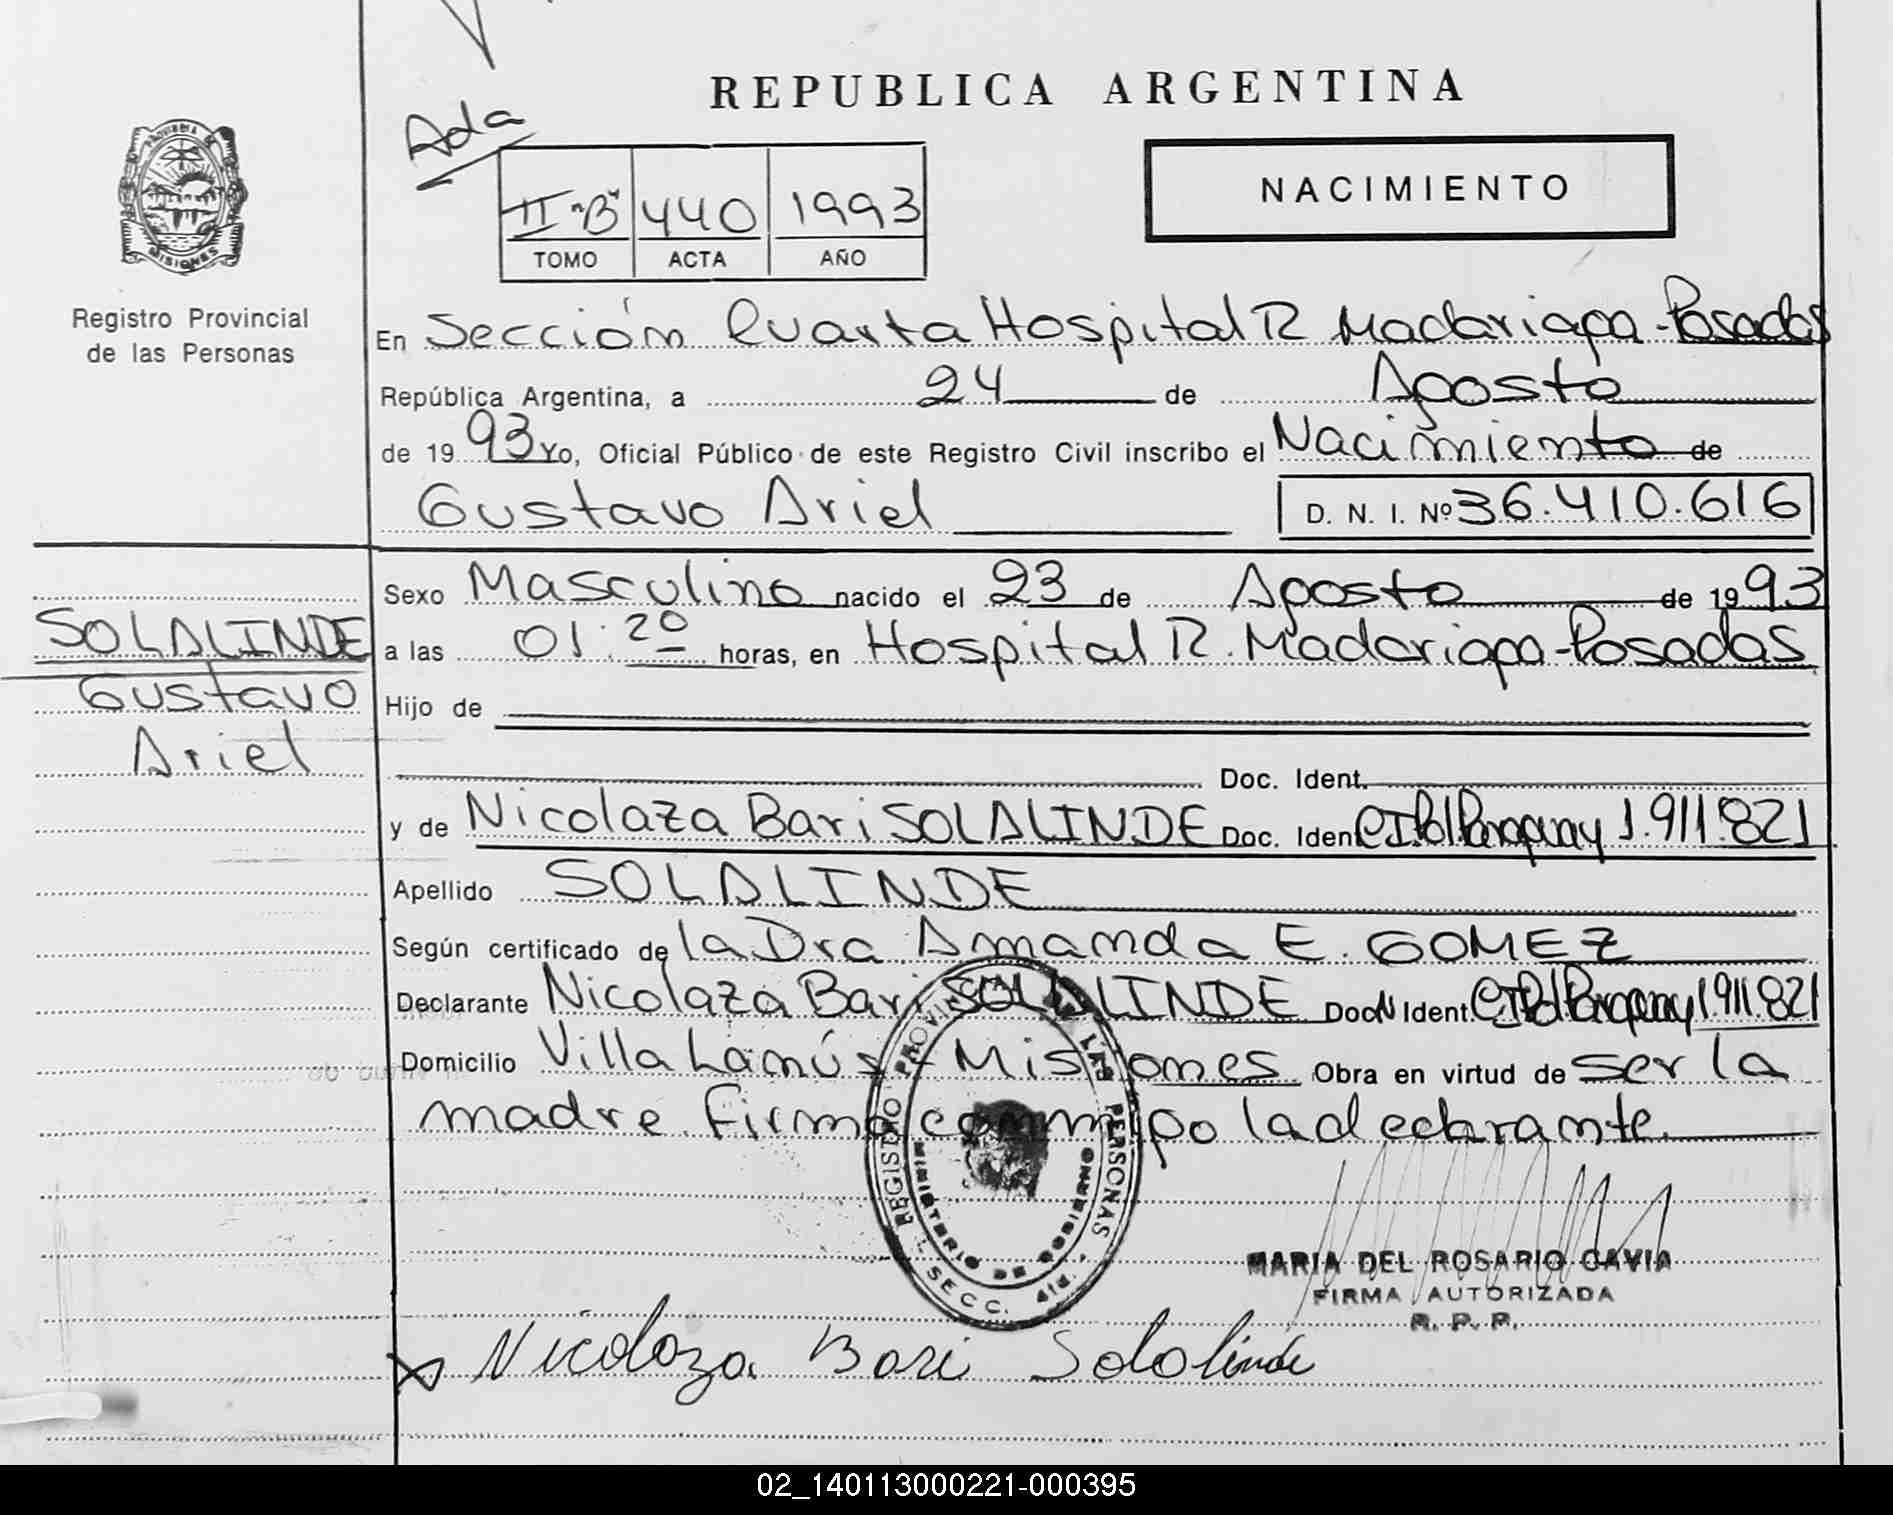 REPUBLICA ARGENTINA
Ada
II-"B" 440 1993
TOMO ACTA AÑO
NACIMIENTO
PROVINCIA DE MISIONES
Registro Provincial
de las Personas
En Sección Cuarta Hospital R Madariaga-Posadas
República Argentina, a 24 de Agosto
de 1993 Yo, Oficial Público de este Registro Civil inscribo el Nacimiento de
Gustavo Ariel D. N. I. Nº 36.410.616
SOLALINDE
Gustavo
Ariel
Sexo Masculino nacido el 23 de Agosto de 1993
a las 01:20 horas, en Hospital R. Madariaga-Posadas
Hijo de
Doc. Ident.
y de Nicolaza Bari SOLALINDE Doc. Ident C.I.Pol Paraguay 1.911.821
Apellido SOLALINDE
Según certificado de la Dra Amanda E. GOMEZ
Declarante Nicolaza Bari SOLALINDE Doc N Ident. C.I.Pol Paraguay 1.911.821
Domicilio Villa Lanús - Misiones Obra en virtud de ser la
madre. Firma conmigo la declarante.
REGISTRO PROVINCIAL DE LAS PERSONAS
MINISTERIO DE GOBIERNO
SECC. 4ta.
MARIA DEL ROSARIO GAVIA
FIRMA AUTORIZADA
R. P. P.
Nicolaza Bari Solalinde
02_140113000221-000395